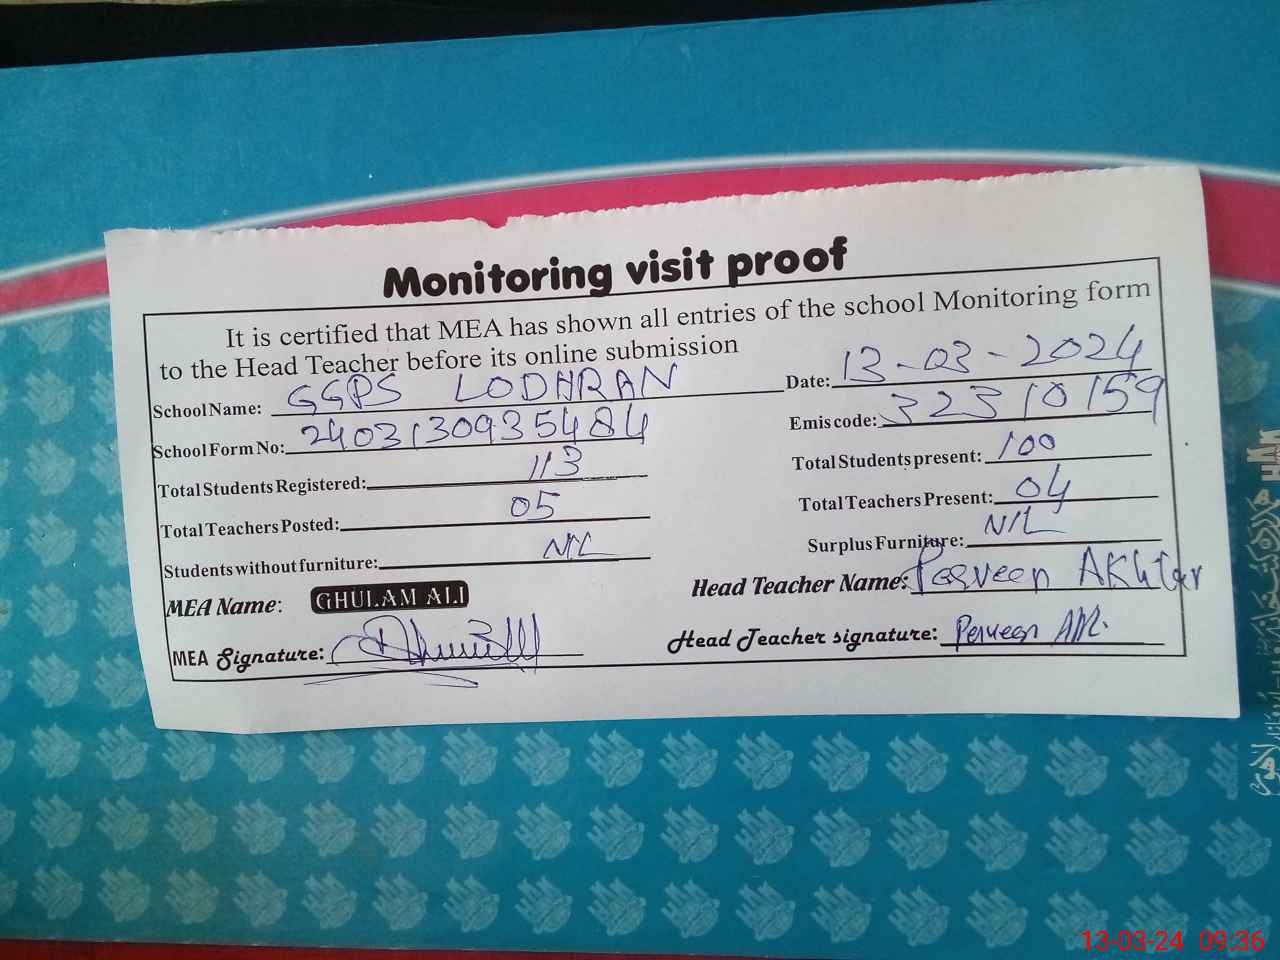 Monitoring visit proof
It is certified that MEA has shown all entries of the school Monitoring form
to the Head Teacher before its online submission
School Name: GGPS LODHRAN Date: 13-03-2024
School Form No: 2403130935484 Emis code: 32310159
Total Students Registered: 113 Total Students present: 100
Total Teachers Posted: 05 Total Teachers Present: 04
Students without furniture: NIL Surplus Furniture: NIL
MEA Name: GHULAM ALI Head Teacher Name: Parveen AKhtar
MEA Signature: Head Teacher signature: Perveen
13-03-24 09:36